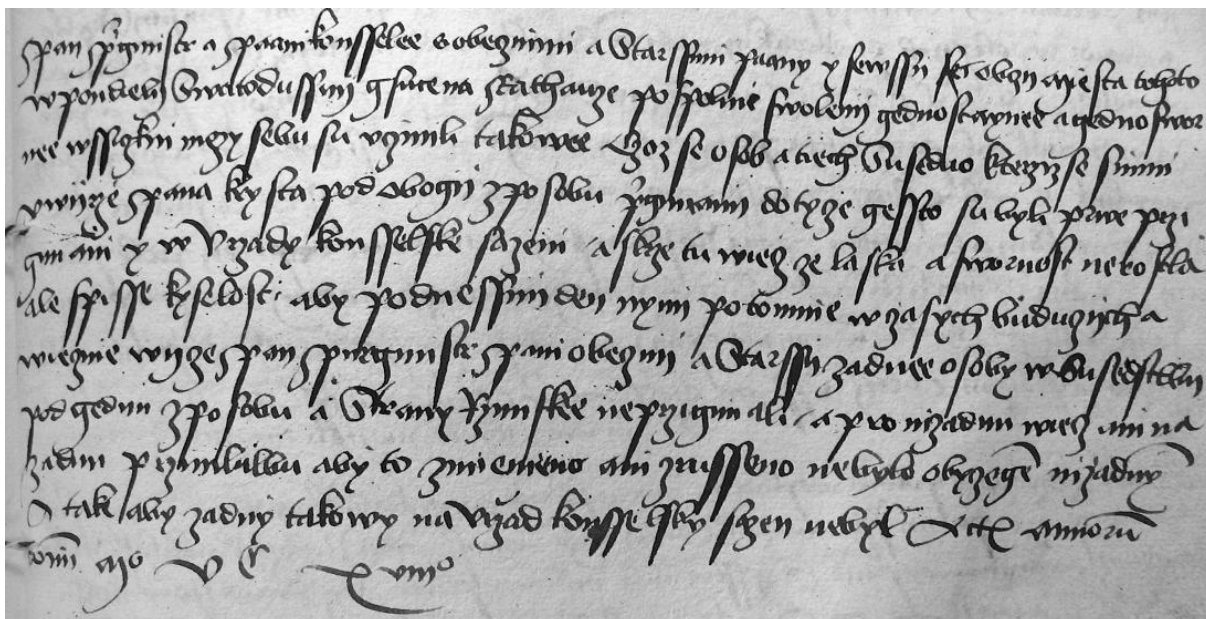 Pan purgmistr a paani konsselee s obecznimi a Starssimi paany y se wssij obczij miesta tohoto
w pondieli Swatodussnij gsucze na Rathauze po spolnie swoleni gednostaynee a gednoswor
nee wssiczkni mezy sebu su vczinili takowee Czoz se osob a tiech Suseduo kterziz se s nimi
v wijrze pana krysta pod obogij zposobu prigimani dotycze gessto su byli prwe przi
gimani y w Vrzady konsselske sazeni a skrze tu wiecz ze laska a swornost nerostla
ale spisse kyselost aby podnessnim den nymi potomnie w czasych buduczijch a
wiecznie wijcze pan purgmistr pani obeczni a Starssij zadnee osoby w Susedstwu
pod gednu zposobu a Strany Rzimskee neprzigimali a pro nizadnu wiecz ani na
zadnu przimluwu aby to zmieneno ani zrusseno nebylo obyczegem nizadnym
A tak aby zadny takowy na Vrzad konsselsky sazen nebyl Actum annorum
domini Mo Vc xviiio